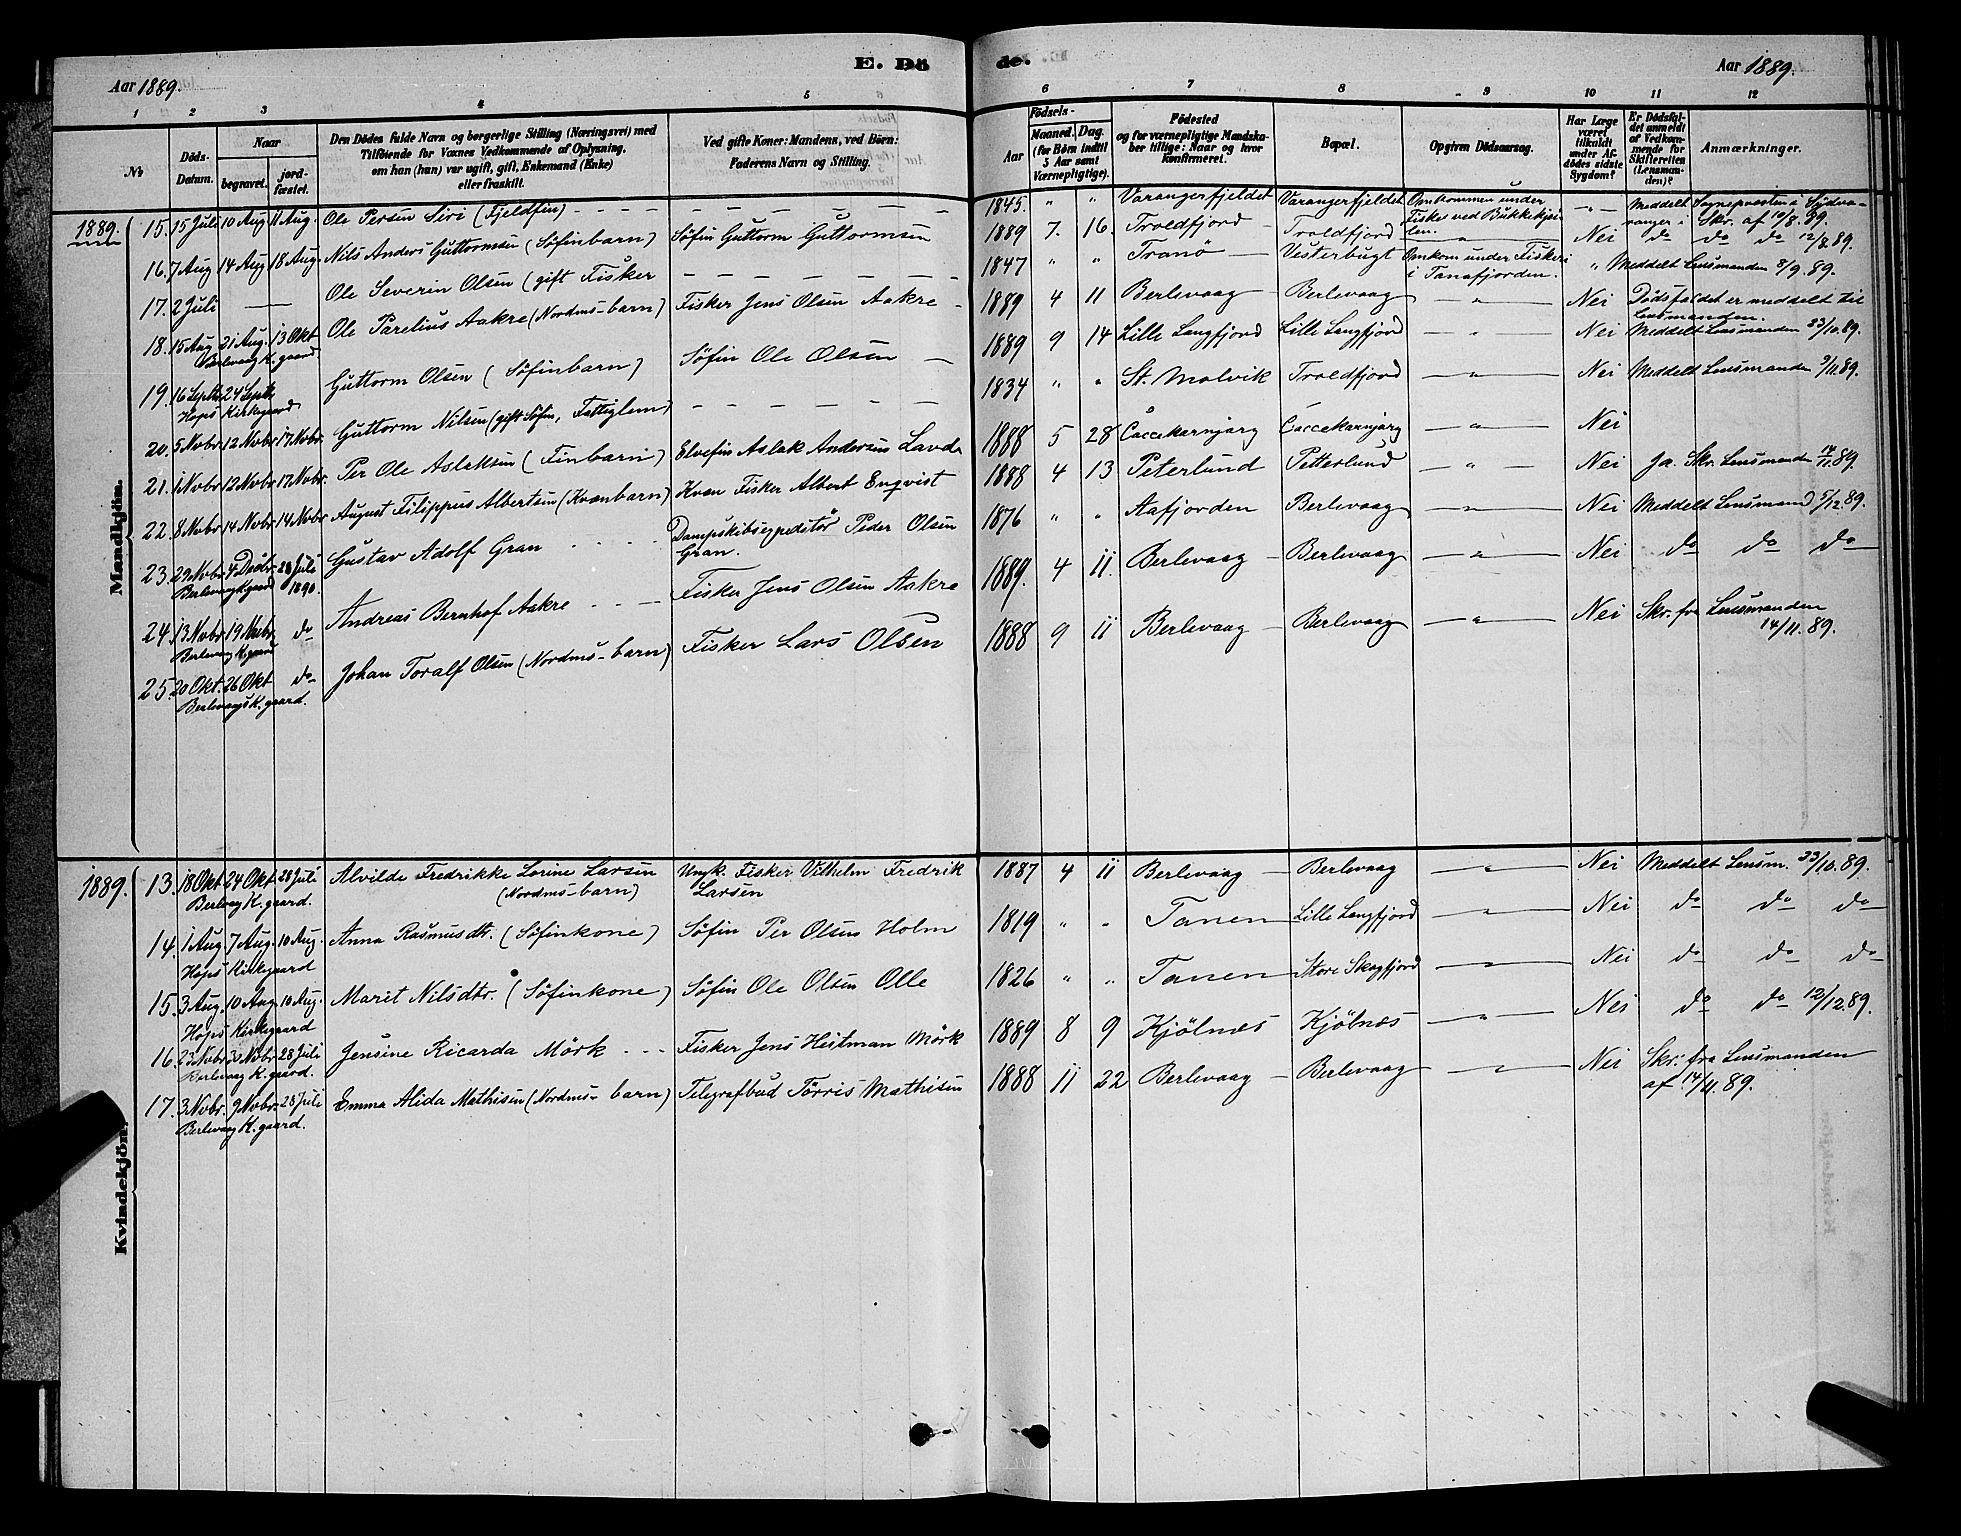 E. Dö
Aar 1889.
1 2 3 4 5
No
Döds-Datum.
Naar
begravet.
jord-fæstet.
Den Dödes fulde Navn og borgerlige Stilling (Næringsvei) med
Tilföiende for Voxnes Vedkommende af Oplysning,
om han (hun) var ugift, gift, Enkemand (Enke)
eller fraskilt.
Ved gifte Koner: Mandens, ved Börn:
Faderens Navn og Stilling.
Mandkjön.
1889. 15. 15 Juli 10 Aug 11 Aug. Ole Persen Siri (Fjeldfin) - - - -
16. 7 Aug 14 Aug 18 Aug. Nils Anders Guttormsen (Söfinbarn) Söfin Guttorm Guttormsen
17. 2 Juli — Ole Severin Olsen (gift Fisker - - - - -
18. 15 Aug 21 Aug. 13 Okt Ole Parelius Aakre (Nordms-barn) Fisker Jens Olsen Aakre -
Berlevaag K. gaard
19. 16 Septr 24 Septr Guttorm Olsen (Söfinbarn) Söfin Ole Olsen —
Hops Kirkegaard
20. 5 Nvbr 12 Nvbr 17 Nvbr. Guttorm Nilsen (gift Söfin, Fattiglem) - - - - -
21. 1 Nvbr 12 Nvbr 17 Nvbr. Per Ole Aslaksen (Finbarn) Elvefin Aslak Andersen Lavde
22. 8 Nvbr 14 Nvbr 14 Nvbr August Filippus Albertsen (Kvænbarn) Kvæn Fisker Albert Enqvist
23. 29 Nvbr 4 Decbr 28 Juli Gustav Adolf Gran - - - - Dampskibsexpeditör Peder Olsen
Berlevaag K gaard 1890. Gran.
24. 13 Nvbr 19 Nvbr do Andreas Bernhof Aakre - - — Fisker Jens Olsen Aakre
Berlevaag K. gaard
25. 20 Okt. 26 Okt do Johan Toralf Olsen (Nordms-barn) Fisker Lars Olsen
Berlevaags K. gaard.
Kvindekjön.
1889. 13. 18 Okt 24 Okt 28 Juli Alvilde Fredrikke Lorine Larsen Ungk. Fisker Vilhelm Fredrik
Berlevaag K. gaard. (Nordms-barn) Larsen
14. 1 Aug. 7 Aug. 10 Aug. Anna Rasmusdtr. (Söfinkone) Söfin Per Olsen Holm
Hops Kirkegaard
15. 3 Aug. 10 Aug. 10 Aug. Marit Nilsdtr. (Söfinkone) Söfin Ole Olsen Olle
Hops Kirkegaard
16. 23 Nvbr 30 Nvbr 28 Juli Jensine Ricarda Mörk - - - Fisker Jens Heitman Mörk
Berlevaag K. gaard.
17. 3 Nvbr. 9 Nvbr. 28 Juli Emma Alida Mathisen (Nordms-barn) Telegrafbud Törris Mathisen
Berlevaag K. gaard.
de.
Aar 1889.
6 7 8 9 10 11 12
Födsels-
Aar
Maaned. Dag.
(for Börn indtil
5 Aar samt
Værnepligtige).
Födested
og for værnepligtige Mandska-
ber tillige: Naar og hvor
konfirmeret.
Bopæl.
Opgiven Dödsaarsag.
Har Læge
været
tilkaldt
under Af-
dödes sidste
Sygdom?
Er Dödsfal-
det anmeldt
af Vedkom-
mende for
Skifteretten
(Lensman-
den)?
Anmærkninger.
1845. " " Varangerfjeldet Varangerfjeldet Omkommen under "— Meddelt Sognepresten i Sydva-
Fiske ved Bukkekjei- ranger i Skr. af 19/8. 89.
1889 7. 16. Troldfjord — Troldfjord len. " Nei do do do 12/8. 89.
1847 " " Tranö — Vesterbugt Omkom under Fiskeri " Meddelt Lensmanden 8/9. 89.
i Tanafjorden.
1889 4 11 Berlevaag — Berlevaag — " — Nei Dödsfaldet er meddelt til
Lensmanden.
1889 9 14 Lille Langfjord Lille Langfjord — " — Nei Meddelt Lensmanden 23/10. 89.
1834 " " St. Molvik Troldfjord — " — Nei Meddelt Lensmanden 9/11. 89.
1888 5 28 Caccekarnjarg Caccekarnjarg — " — Nei
1888 4 13 Peterlund Petterlund — " — Nei Ja. Skr. Lensmanden 14/11. 89.
1876 " " Aafjorden Berlevaag — " — Nei Meddelt Lensmand 5/12. 89.
1889. 4 11. Berlevaag — Berlevaag — " — Nei do do do
1888 9 11 Berlevaag — Berlevaag — " — Nei Skr. fra Lensmanden
14/11. 89.
1887 4 11 Berlevaag — Berlevaag — " — Nei Meddelt Lensm. 23/10. 89.
1819 " " Tanen — Lille Langfjord — " — Nei do do do
1826 " " Tanen — Store Skogfjord — " — Nei do do do
1889 8 9 Kjölnæs Kjölnæs — " — Nei do do 12/12. 89.
1888 11 22 Berlevaag — Berlevaag — " — Nei Skr. fra Lensmanden
af 14/11. 89.